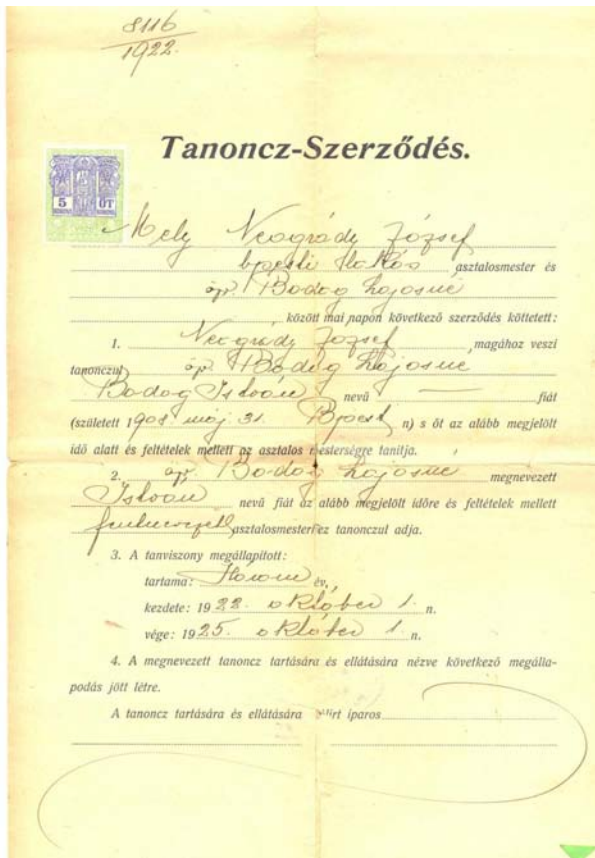 8116
1922.
Tanoncz-Szerződés.
5 ÖT
Mely Neogrády József
bpesti lakós asztalosmester és
özv. Bodog Lajosné
között mai napon következő szerződés köttetett:
1. Neogrády József magához veszi
tanonczul özv. Bodog Lajosné
Bodog István nevű fiát
(született 1908. máj. 31. Bpest n) s őt az alább megjelölt
idő alatt és feltételek mellett az asztalos mesterségre tanitja.
2. özv. Bodog Lajosné megnevezett
István nevű fiát az alább megjelölt időre és feltételek mellett
asztalosmesterhez tanonczul adja.
3. A tanviszony megállapított:
tartama: Három év,
kezdete: 1922. október 1. n.
vége: 1925. október 1. n.
4. A megnevezett tanoncz tartására és ellátására nézve következő megálla-
podás jött létre.
A tanoncz tartására és ellátására iparos